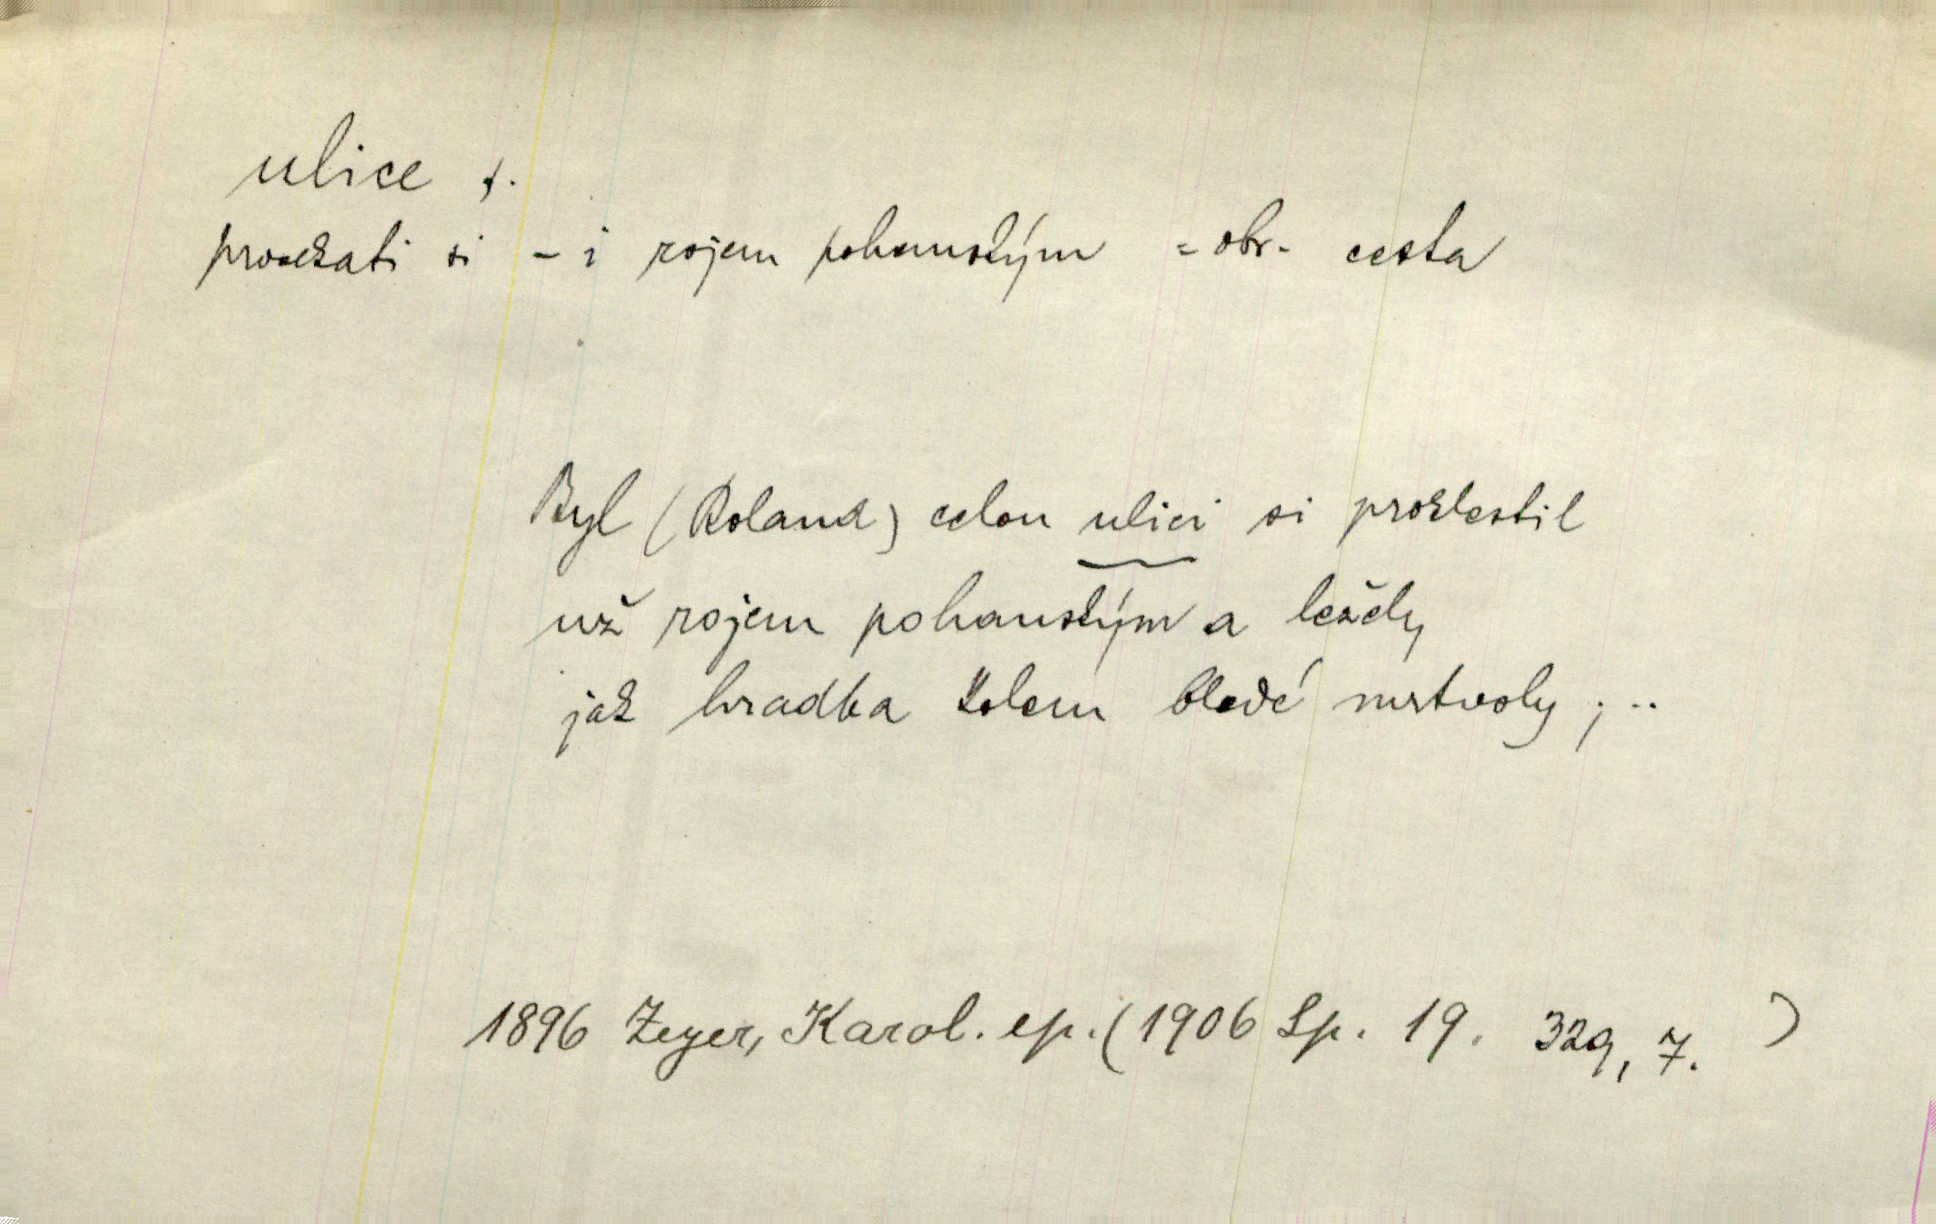 ulice f.
prosekati si - i rojem pohanským = obr. cesta
Byl (Roland) celou ulici si proklestil
už rojem pohanským a ležely
jak hradba kolem bledé mrtvoly ; ..
1896 Zeyer, Karol. ep. (1906 Sp. 19. 329, 7. )